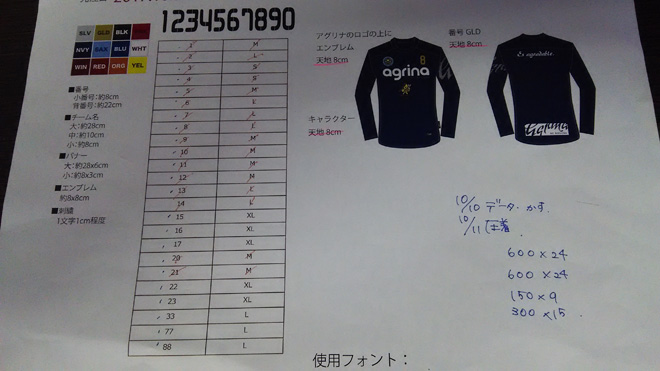 1234567890
SLV GLD BLK
NVY SAX BLU WHT
WIN RED ORG YEL
■番号
小番号：約8cm
背番号：約22cm
■チーム名
大：約28cm
中：約10cm
小：約8cm
■バナー
大：約28x6cm
小：約8x3cm
■エンブレム
約8x8cm
■刺繍
1文字1cm程度
1 M
2 L
3 S
4 S
5 M
6 L
7 L
8 L
9 M
10 M
11 M
12 M
13 L
14 L
15 XL
16 XL
17 XL
20 M
21 M
22 XL
23 XL
33 L
77 L
88 L
アグリナのロゴの上に
エンブレム
天地 8cm
キャラクター
天地 8cm
agrina
8
番号 GLD
天地 8cm
Es agradable
10/10 データ・かす
10/11 圧着
600×24
600×24
150×9
300×15
使用フォント：